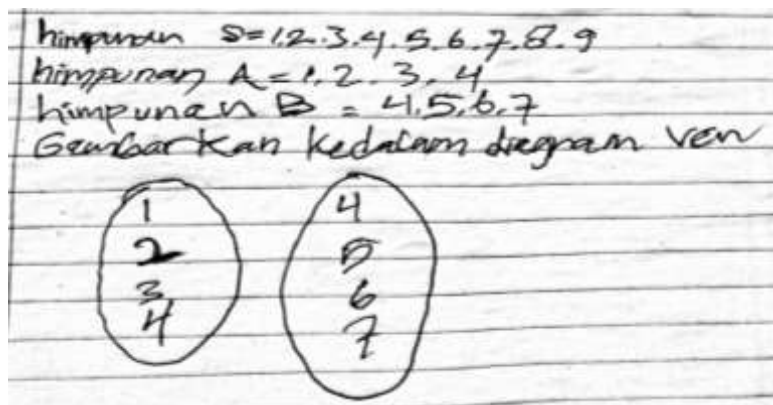 himpunan S=1.2.3.4.5.6.7.8.9
himpunan A=1.2.3.4
himpunan B = 4.5.6.7
Gambarkan kedalam diagram ven
1 4
2 5
3 6
4 7